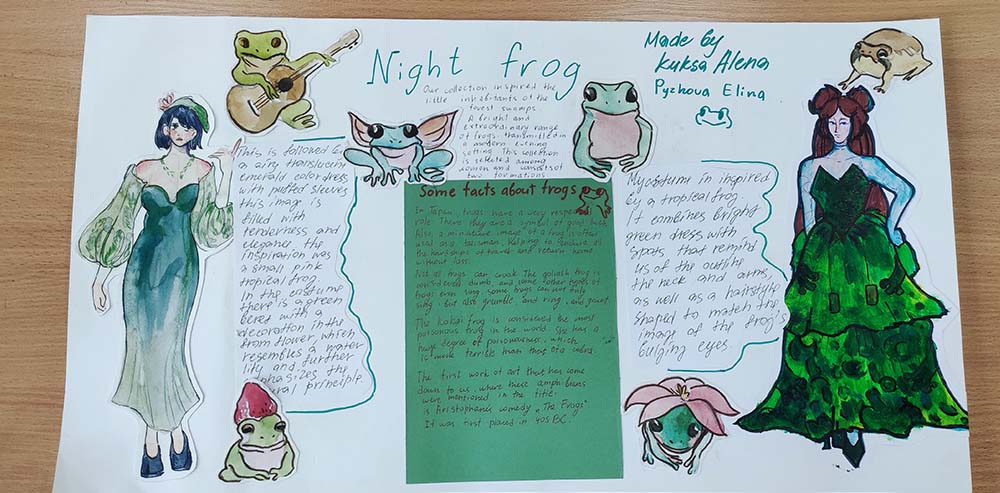 Night frog
Our collection inspired the
little inhabitants of the
forest swamps
A bright and
extraordinary range
of frogs, transmitted in
a modern evening
setting This collection
is selected among
women and consists of
two formations
Made by
Kuksa Alena
Pyzhova Elina
This is followed by
a airy translucent
emerald color dress
with puffed sleeves
this image is
filled with
tenderness and
elegance, the
inspiration was
a small pink
tropical frog.
In the costume
there is a green
beret with a
decoration in the
from flower, which
resembles a water
lily and further
emphasizes the
natural principle
Some facts about frogs
In Japan, frogs have a very respected
role. There they are a symbol of good luck
Also, a miniature image of a frog is often
used as a talisman, helping to endure all
the hardships of travel and return home
without loss.
Not all frogs can croak. The goliath frog is
considered dumb, and some other types of
frogs even sing. Some frogs can not only
sing, but also grumble and ring, and grunt.
The Kokoi frog is considered the most
poisonous frog in the world. She has a
huge degree of poisonousness, which
is more terrible than that of a cobra.
The first work of art that has come
down to us, where these amphibians
were mentioned in the title.
is Aristophanes comedy „The Frogs"
It was first placed in 405 BC.
My costume in inspired
by a tropical frog.
It combines bright
green dress with
spots that remind
us of the outline
the neck and arms,
as well as a hairstyle
shaped to match the
image of the frog's
bulging eyes.